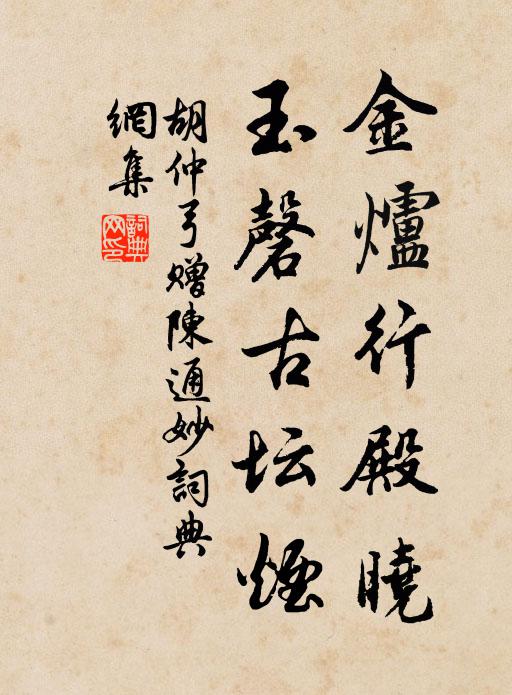 金爐行殿曉
玉磬古坛煙
胡仲弓赠陳通妙詞典
網集
詞典
网印